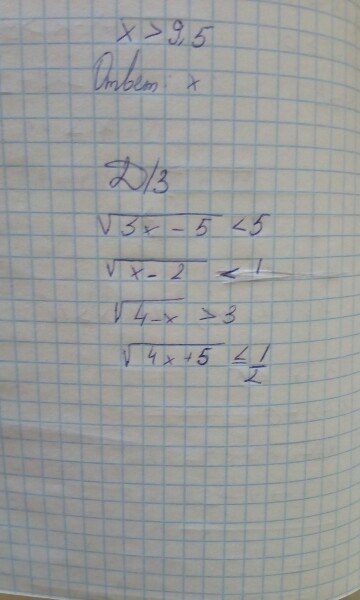 x > 9,5
Ответ: x
Д/З
√3x - 5 < 5
√x - 2 < 1
√4-x > 3
√4x+5 ≤ 1/2